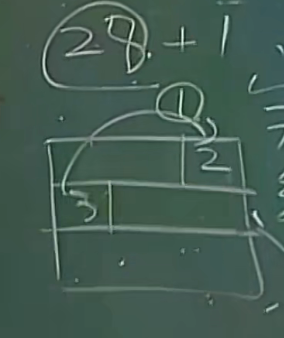 28 + 1
①
2
3